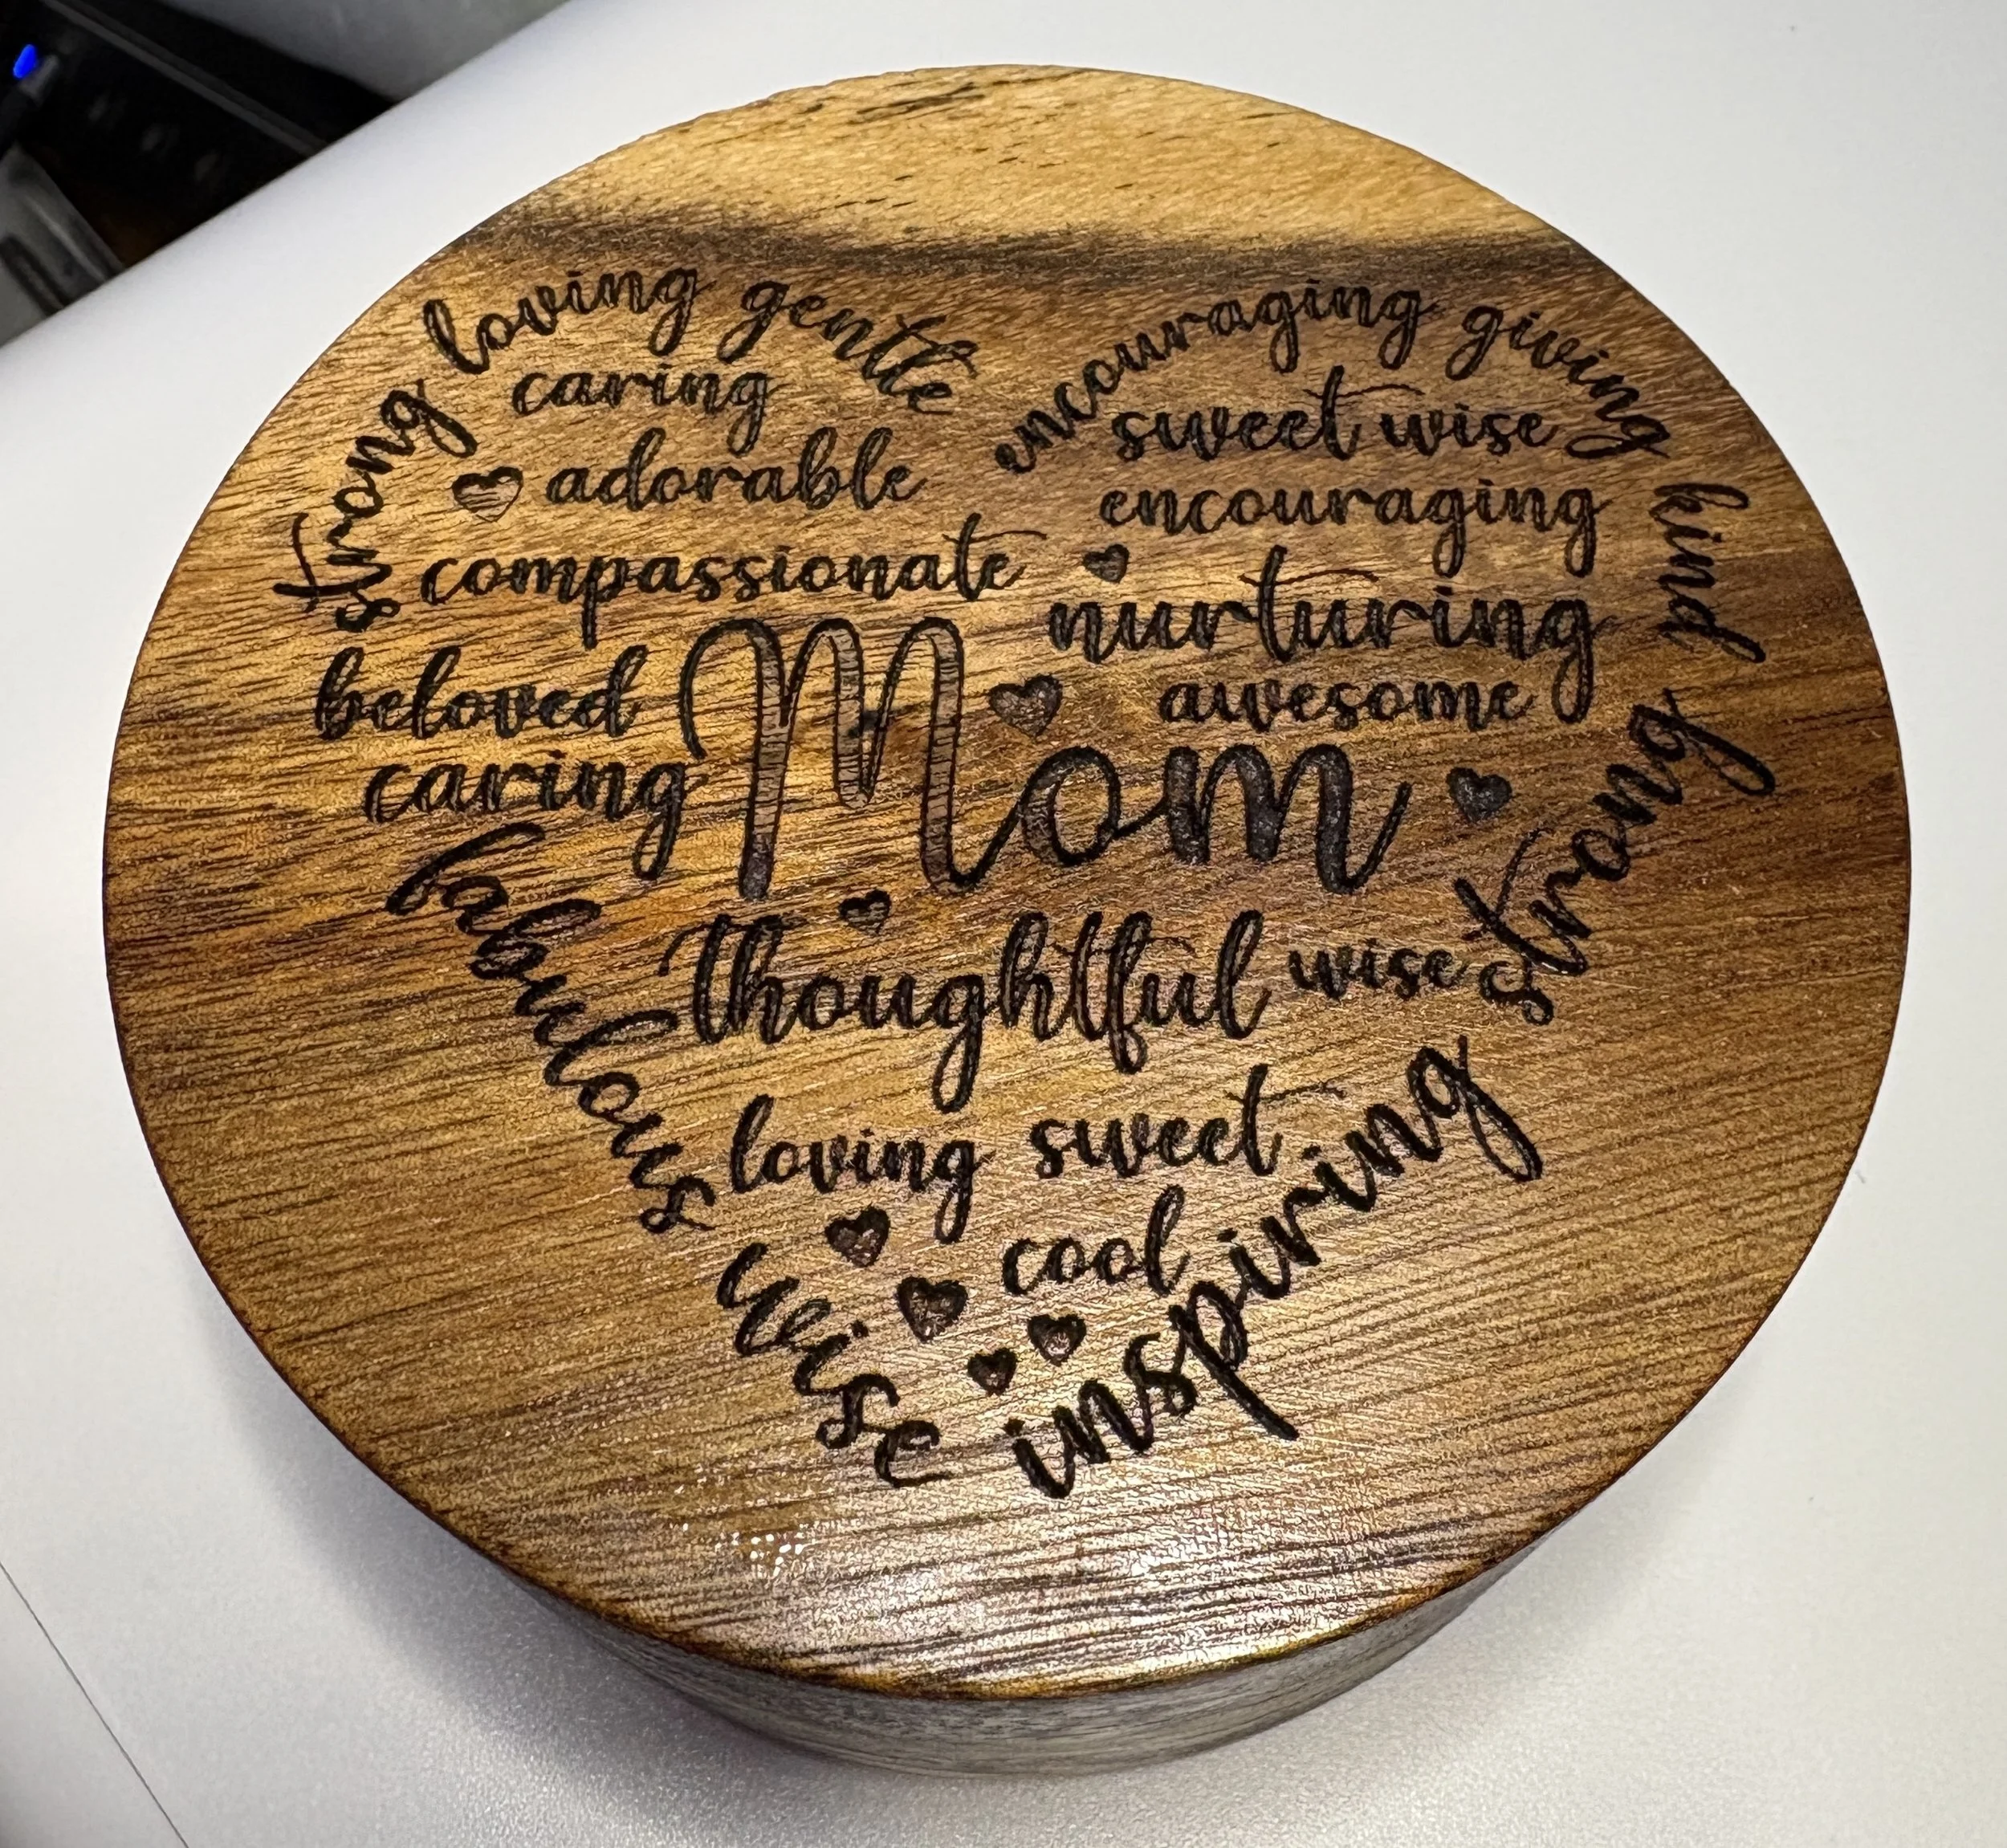 strong loving gentle
encouraging giving kind
caring
sweet wise
adorable
encouraging
compassionate
nurturing
beloved
awesome
caring
Mom
strong
fabulous
thoughtful wise
loving sweet
cool
wise inspiring